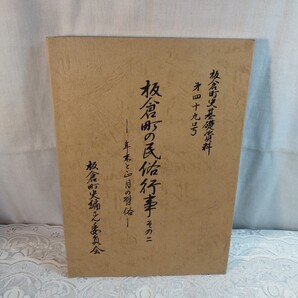 板倉町史基礎資料
第四十九号
板倉町の民俗行事 その二
―年末と正月の習俗―
板倉町史編さん委員会